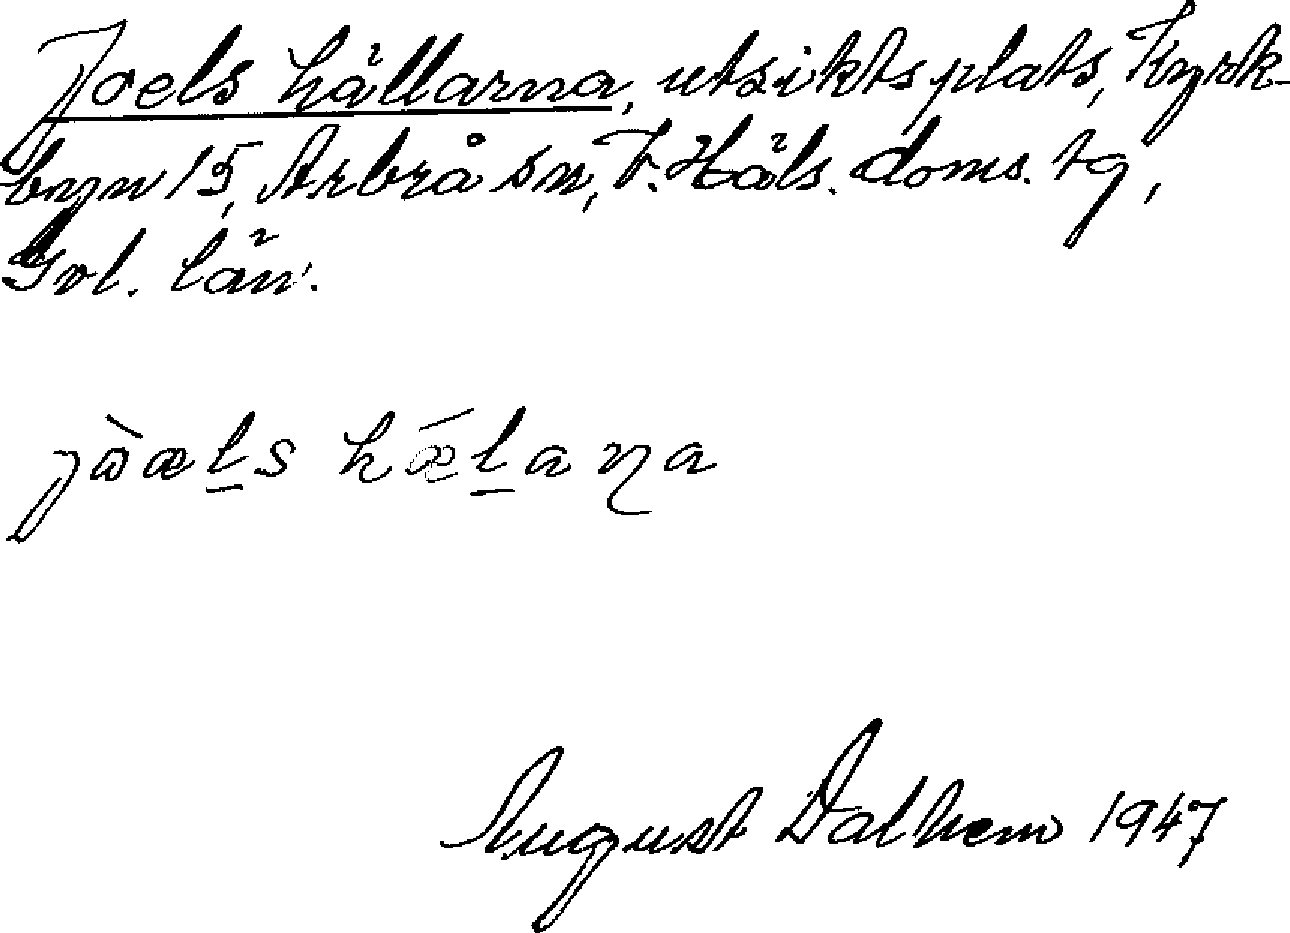 Joels hällarna, utsiktsplats, Kyrk-
byn 15, Arbrå sn, V. Häls. doms. tg,
Gvl. län.
jòæl̲s hǽl̲aɳa
August Dalhem 1947